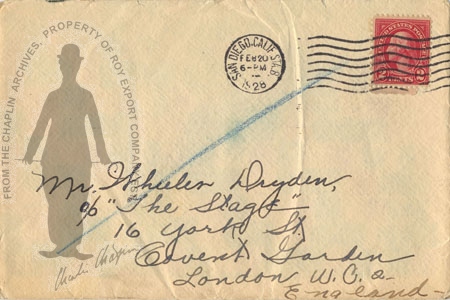 FROM THE CHAPLIN ARCHIVES. PROPERTY OF ROY EXPORT COMPANY EST
SAN DIEGO, CALIF.
FEB 20
6-PM
1926
Mr. Wheeler Dryden,
c/o "The Stage"
16 York St.
Covent Garden
London W.C.2-
England-
Charlie Chaplin